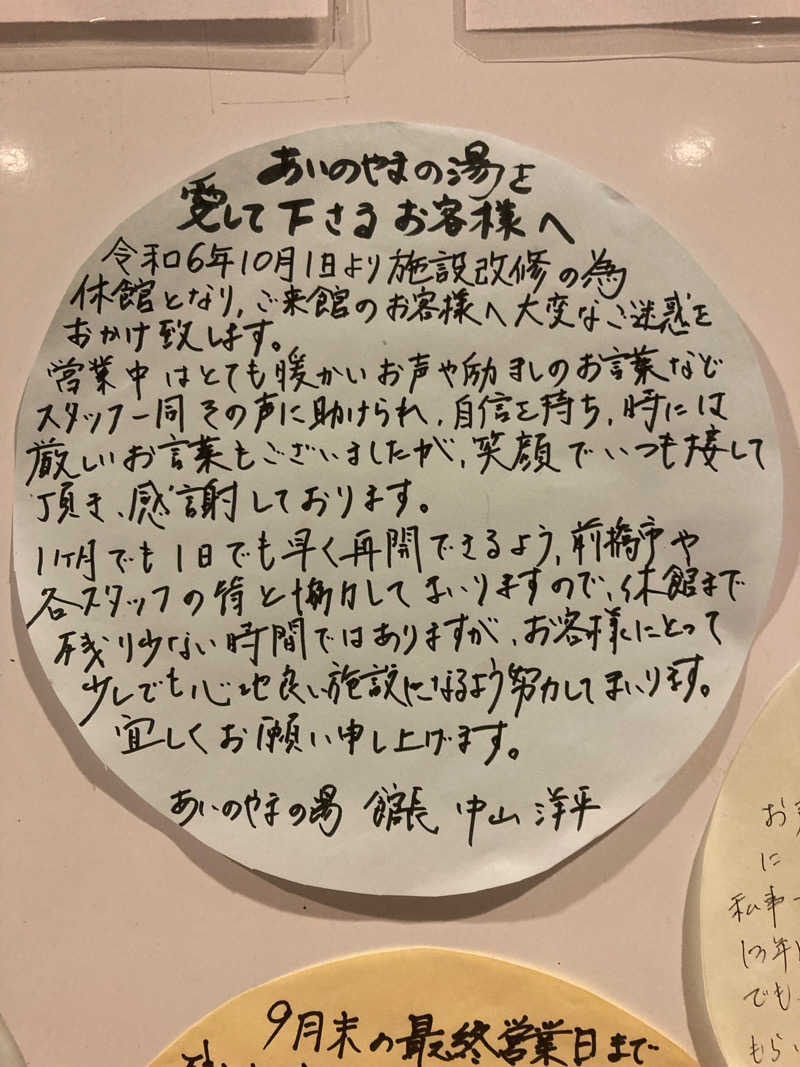 あいのやまの湯を
愛して下さるお客様へ
令和6年10月1日より施設改修の為
休館となり、ご来館のお客様へ大変なご迷惑を
おかけ致します。
営業中はとても暖かいお声や励ましのお言葉など
スタッフ一同その声に助けられ、自信を持ち、時には
厳しいお言葉もございましたが、笑顔でいつも接して
頂き、感謝しております。
1ヶ月でも1日でも早く再開できるよう、前橋市や
各スタッフの皆と協力してまいりますので、休館まで
残り少ない時間ではありますが、お客様にとって
少しでも心地良い施設になるよう努力してまいります。
宜しくお願い申し上げます。
あいのやまの湯 館長 中山 洋平
お
に
私事
13年
でも
もら
9月末の最終営業日まで